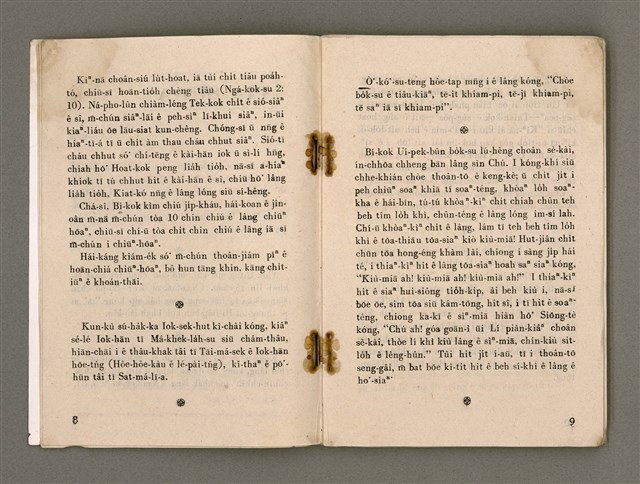 Kiⁿ-nā choân-siú lu̍t-hoat, iā tùi chi̍t tiâu poa̍h-
tó, chiū-sī hoān-tio̍h chèng tiâu (Ngá-kok-su 2:
10). Ná-pho-lûn chiàm-léng Tek-kok chi̍t ê sió-siâⁿ
ê sî, m̄-chún siâⁿ-lāi ê peh-sìⁿ lī-khui siâⁿ, in-ūi
kiaⁿ-liáu ōe lāu-siat kun-chêng. Chóng-sī ū nn̄g ê
hiaⁿ-tī-á tī ū chi̍t àm thau cháu chhut siâⁿ. Sió-tī
cháu chhut só͘ chí-tēng ê kài-hān iok ū sì-lí hn̄g,
chiah hō͘ Hoat-kok peng lia̍h tio̍h, nā-sī a-hiaⁿ
khiok tī tú chhut hit ê kài-hān ê sî, chiū hō͘ lâng
lia̍h tio̍h, Kiat-kó nn̄g ê lâng lóng siū sí-hêng.
Chá-sî, Bí-kok kìm chiú ji̍p-kháu, hái-koan ê jîn-
oân m̄-nā m̄-chún tòa 10 chin chiú ê lâng chiūⁿ
hōaⁿ, chiū-sī chí-ū tòa chi̍t chin chiú ê lâng iā sī
m̄-chún i chiūⁿ-hōaⁿ.
Hái-káng kiám-e̍k só͘ m̄-chún thoân-jiám pīⁿ ê
hoān-chiá chiūⁿ-hōaⁿ, bô hun tāng khin, kāng chi̍t-
iūⁿ ê khoán-thāi.
Kun-kù sù-ha̍k-ka Iok-sek-hut kì-chài kóng, kiâⁿ
sé-lé Iok-hān tī Má-khek-la̍h-su siū chám-thâu,
hiān-chāi i ê thâu-khak tāi tī Tāi-má-sek ê Iok-hān
hōe-tn̂g (Hôe-hôe-kàu ê lé-pài-tn̂g), kî-thaⁿ ê pō͘-
hūn tâi tī Sat-má-lī-a.
8
Ò͘-kó͘-su-teng hôe-tap mn̄g i ê lâng kóng, “Chòe
bo̍k-su ê tiâu-kiāⁿ, tē-it khiam-pi, tē-jī khiam-pi,
tē saⁿ iā sī khiam-pi”.
Bí-kok Ui-pek-bûn bo̍k-su lú-hêng choân sè-kài,
ín-chhōa chheng bān lâng sìn Chú. I kóng-khí siú
chhe-khián chòe thoân-tō ê keng-kè; ū chi̍t ji̍t i
peh chiūⁿ soaⁿ khiā tī soaⁿ-téng, khòa lo̍h soaⁿ-
kha ê hái-bīn, tú-tú khòaⁿ-kìⁿ chi̍t chiah chûn teh
beh tîm lo̍h khì, chûn-téng ê lâng lóng im-sí lah.
Chi-ū khòaⁿ-kìⁿ chi̍t ê lâng, lâm tī teh beh tîm lo̍h
khì ê tōa-thiāu tōa-siaⁿ kiò kiù-miā! Hut-jiân chi̍t
chūn tōa hong-éng khàm lâi, chiong i sàng ji̍p hái
té, i thiaⁿ-kìⁿ hit ê lâng tōa-siaⁿ hoah saⁿ siaⁿ kóng.
“Kiù-miā ah! kiù-miā ah! kiù-miā ah!” I thiaⁿ-kìⁿ
hit ê siaⁿ hui-siông tio̍h-kip, ài beh kiù i, nā-sī
bōe ōe, sim tōa siū kám-tōng, hit sî, i tī hit ê soaⁿ-
téng, chiong ka-kī ê sìⁿ-miā hiàn hō͘ Siōng-tè
kóng, “Chú ah! góa goān-ì ūi Lí piàn-kiâⁿ choân
sè-kài, thòe Lí khì kiù lâng ê sìⁿ-miā, chín-kiù sit-
lo̍h ê lêng-hûn.” Tùi hit ji̍t í-āu, tī i thoân-tō
seng-gâi, m̄ bat bōe kì-tit hit ê beh sí-khì ê lâng ê
ho͘-siaⁿ.
9